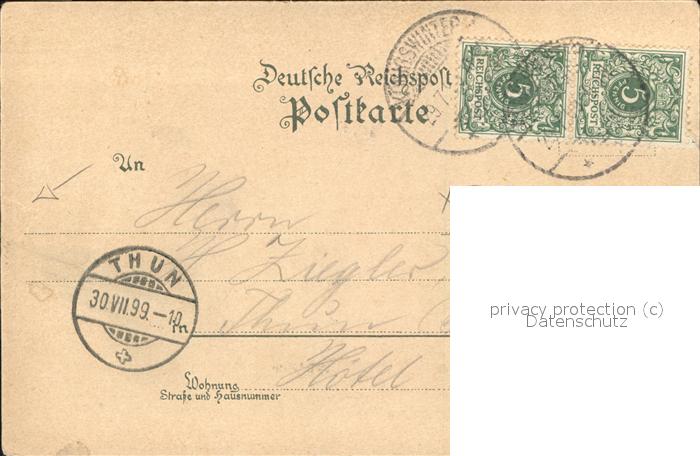 Deutsche Reichspost
Postkarte
KÖNIGSWINTER
REICHSPOST
5
REICHSPOST
5
An
Herrn
H Ziegler
THUN
30.VII.99.–10
in Thun
Hôtel
Wohnung
Straße und Hausnummer
privacy protection (c)
Datenschutz